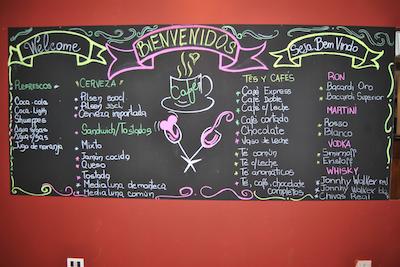 Welcome
BIENVENIDOS
Seja Bem Vindo
café
REFRESCOS
Coca-cola
Coca-Light
Shweppes
Agua s/gas
Agua c/gas
Jugo de naranja
CERVEZA
Pilsen
Pilsen
Cerveza importada
Sandwich/Tostados
Mixto
Jamón cocido
Queso
Tostada
Medialuna de manteca
Medialuna común
TÉS Y CAFÉS
Café Express
Café Doble
Café c/leche
Café cortado
Chocolate
Vaso de leche
Té común
Té c/leche
Té aromáticos
Té, café, chocolate
completos
RON
Bacardi Oro
Bacardi Superior
MARTINI
Rosso
Blanco
VODKA
Smirnoff
WHISKY
Johnny Walker
Johnny Walker
Chivas Regal